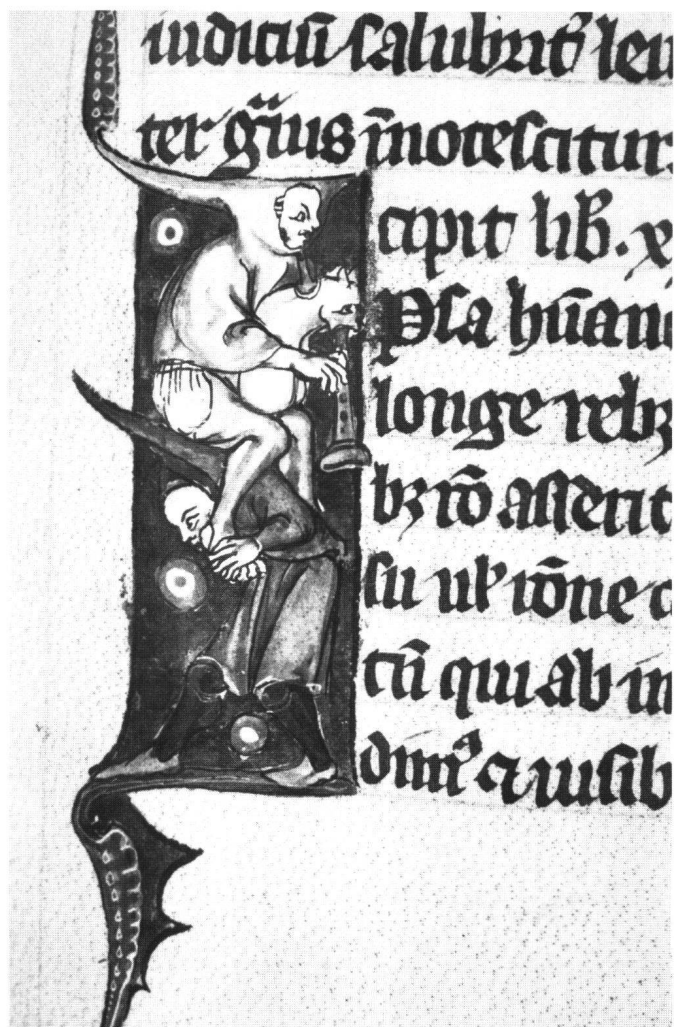 iudiciū salubrit͛ leu
ter gͥus īnotescitur
cipit lib̄. x
Psa hūan
longe reb
bꝫ rō asserit
su ul̕ rōne c
tū qui ab in
dimꝰ ⁊ uisib